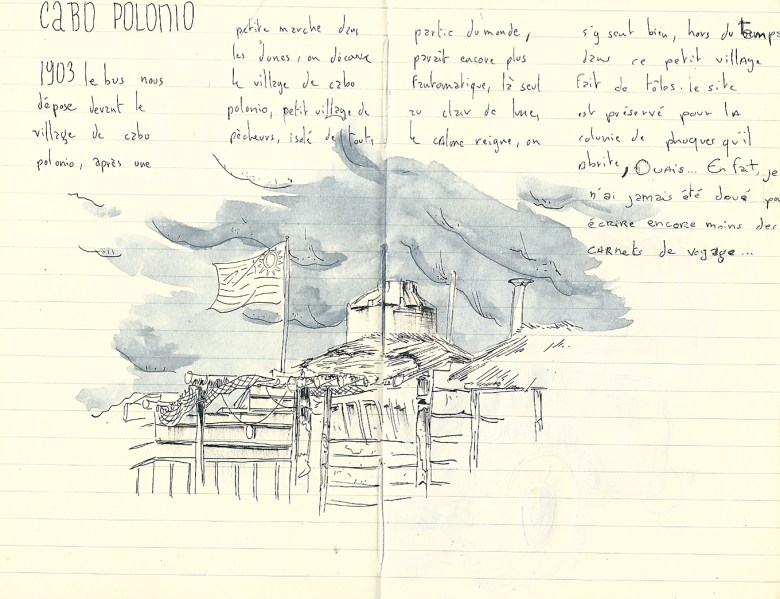 CABO POLONIO
1903 le bus nous
dépose devant le
village de cabo
polonio, après une
petite marche dans
les dunes, on découvre
le village de cabo
polonio, petit village de
pêcheurs, isolé de tout,
partie du monde,
paraît encore plus
fantomatique, là seul
au clair de lune,
le calme reigne, on
s'y sent bien, hors du temps
dans ce petit village
fait de tôles. le site
est préservé pour la
colonie de phoques qu'il
Abrite, Ouais... En fait, je
n'ai jamais été doué pour
écrire encore moins des
CARNETS de voyage...